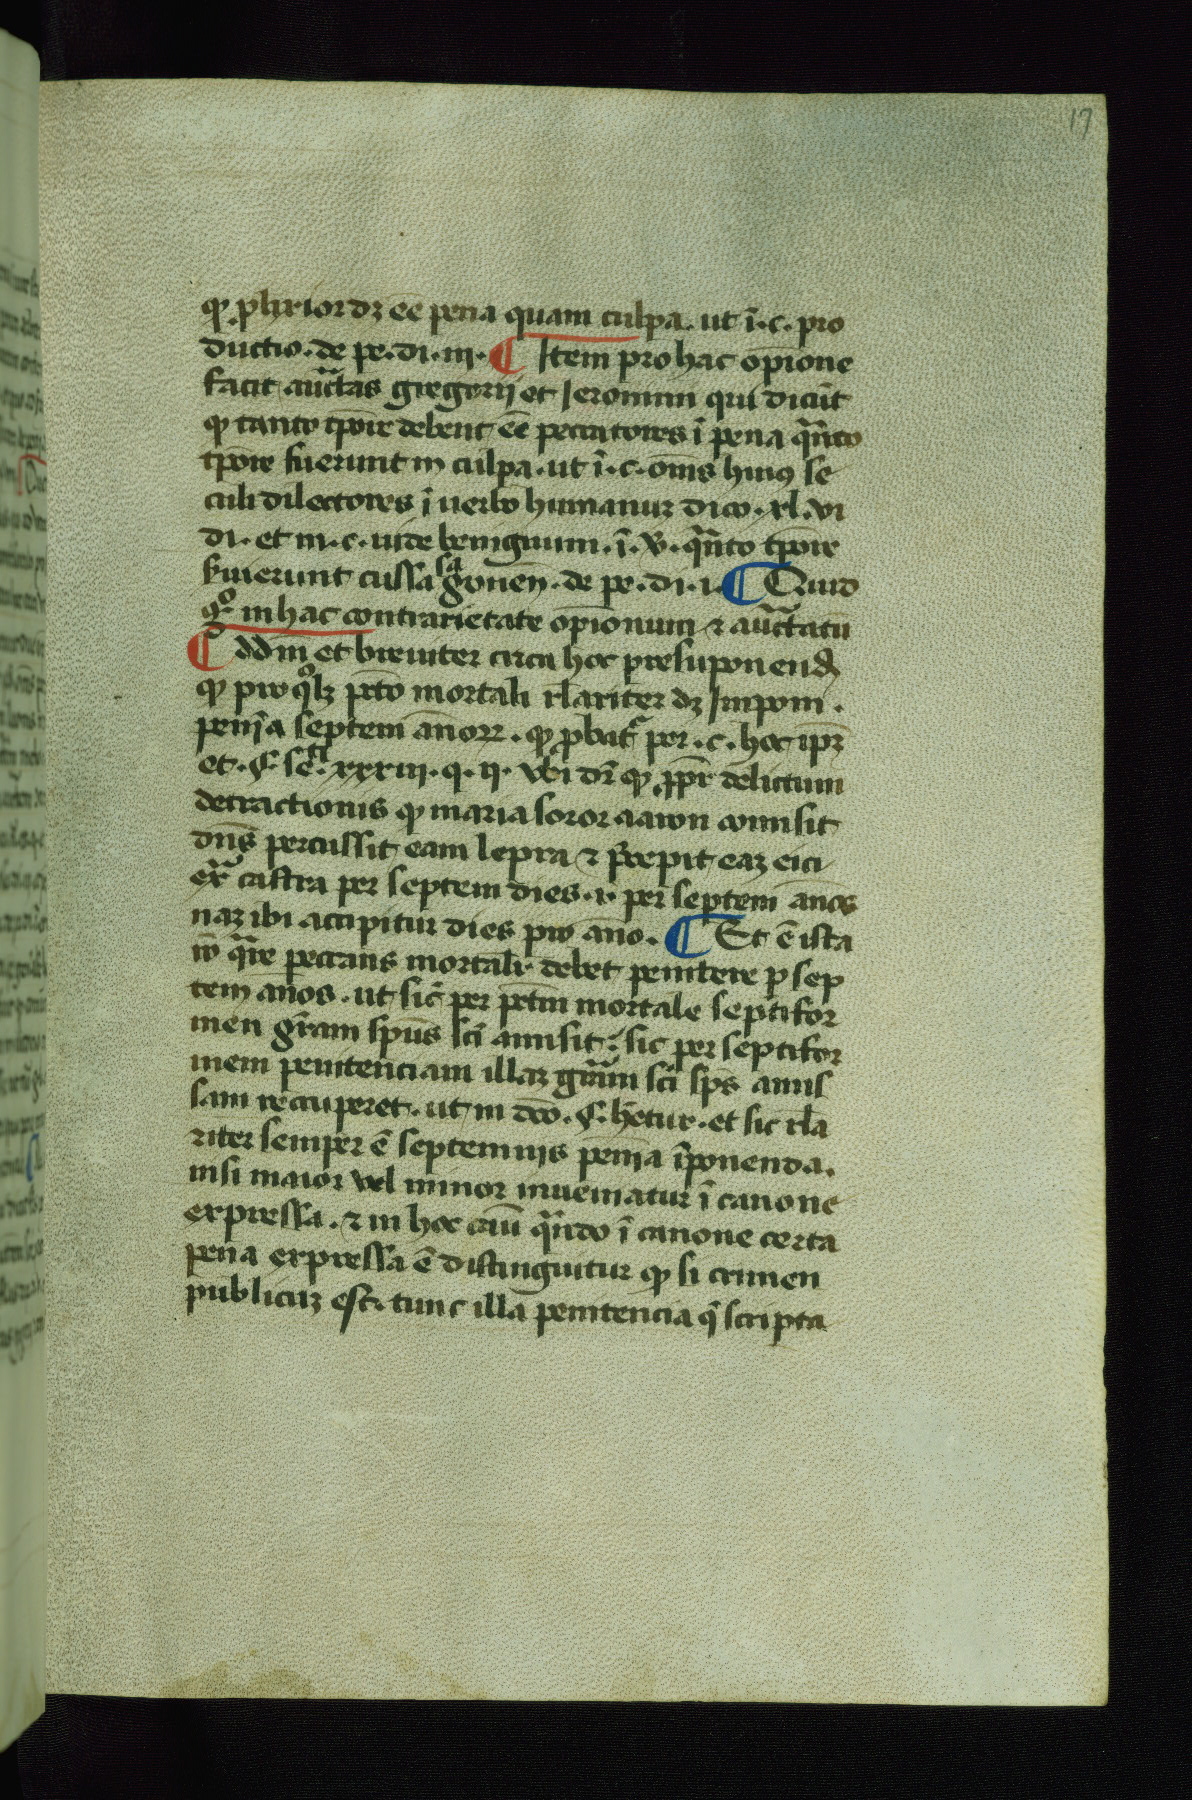 17
qꝫ plixior dꝫ eē pena quam culpa. ut ī. c. pro
ductio. de pe. di. iii. ¶ Item pro hac opīone
facit auctᷓtas gregorij et Ieronimi qui dicūt
qꝫ tanto tp̄ore debent eē peccatores ī pena qn̄to
tp̄ore fuerunt in culpa. ut ī. c. om̄s huiꝰ se
culi dilectores ī verbo humanuꝫ dico. xl. vi
di. et in. c. vide benignum. ī. v. qn̄to tp̄ore
fuerunt de pe. di. i. ¶ Quid
gͦ in hac contrarietate opīonum ⁊ auctᷓtatū
¶ ddm̄ et breuiter circa hoc presuponend
qꝫ pro qͦlꝫ pctō mortali rl̄ariter dꝫ Imponi.
penīa septem ānorꝝ. qꝫ ꝓbatᷣ per. c. hoc ipꝫ
et. c. xxxiii. q. ii. vbi dr̄ qꝫ ꝓpr̄ delictum
detractionis qꝫ maria soror aaron comisit
dn̄s percussit eam lepra ⁊ p̄cepit eaꝫ eici
exᷓ castra per septem dies. i. per septem ānos
naꝫ ibi accipitur dies pro āno. ¶ Et ē ista
rō qᷓre peccans mortalr̄ debet penitere p sep
tem ānos. ut sic̄ per pctm̄ mortale septifor
mem gr̄am spūs sc̄i amisit: sic per septifor
mem penitenciam illaꝫ gr̄am sc̄i sp̄s amis
sam reccuperet. ut in dc̄o. c. hētur. et sic rl̄a
riter semper ē septemnis penīa īponenda.
nisi maior vel minor inueniatur ī canone
expressa. ⁊ in hoc cāu qn̄do ī canone certa
pena expressa ē distinguitur qꝫ si crimen
publicuꝫ est. tunc illa penitencia q̄ scripta